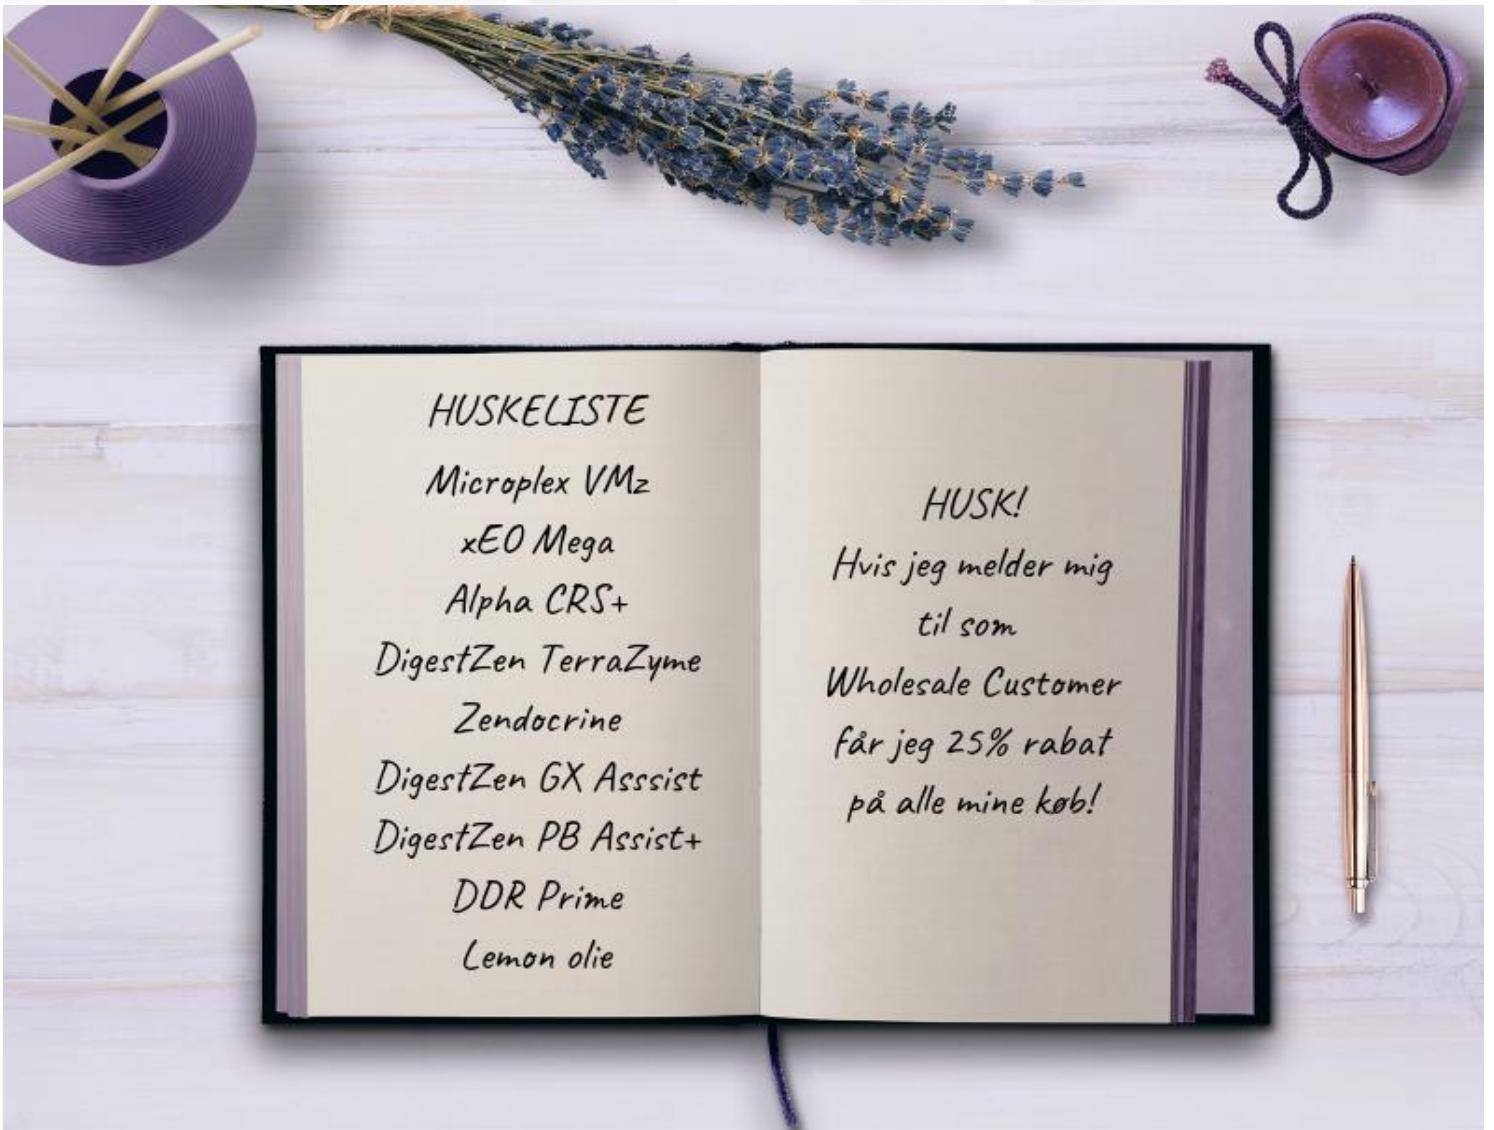 HUSKELISTE
Microplex VMz
xEO Mega
Alpha CRS+
DigestZen TerraZyme
Zendocrine
DigestZen GX Asssist
DigestZen PB Assist+
DDR Prime
Lemon olie
HUSK!
Hvis jeg melder mig
til som
Wholesale Customer
får jeg 25% rabat
på alle mine køb!